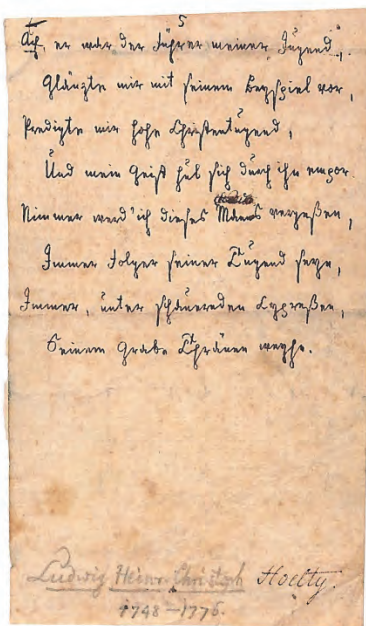 5
Ach, er war der Führer meiner Jugend,
Glänzte mir mit seinem Beyspiel vor,
Predigte mir hohe Christentugend,
Und mein Geist hub sich durch ihn empor.
Nimmer werd' ich dieses Manns vergeßen,
Immer Folger seiner Tugend seyn,
Immer, unter schauernden Cypreßen,
Seinem Grabe Thränen weyhn.
Ludwig Heinr. Christoph Hoelty.
1748-1776.